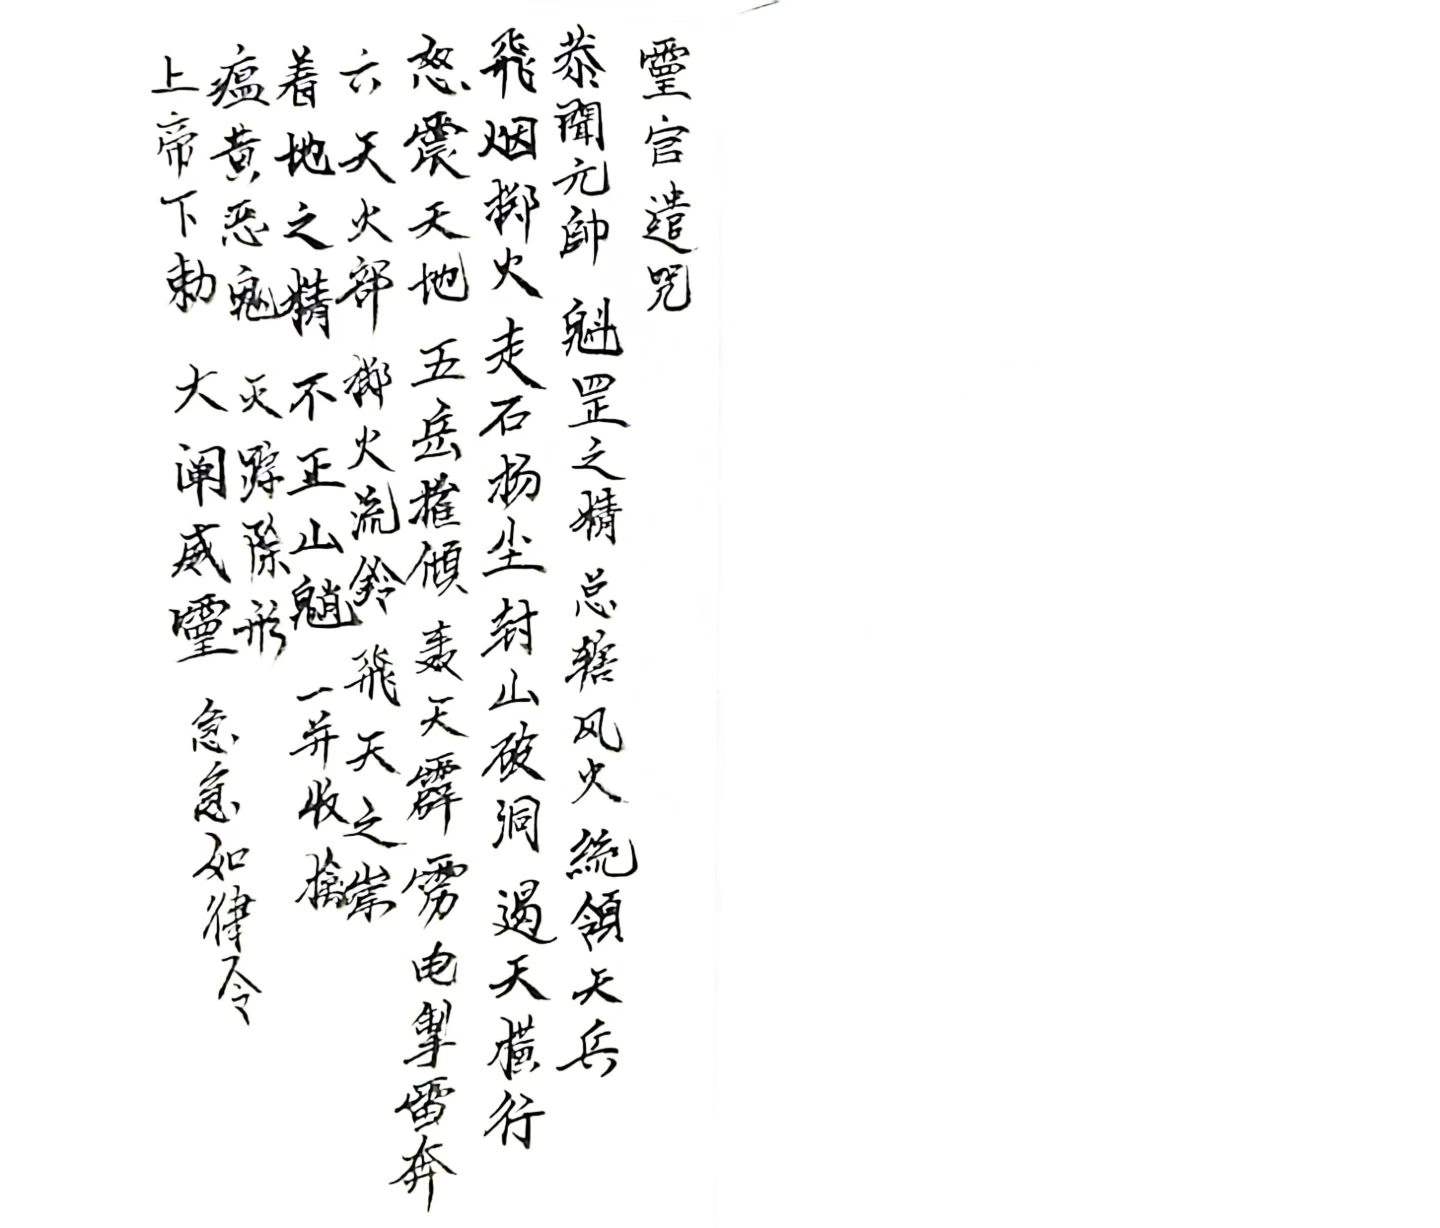 靈官遣咒
恭聞元帥 魁罡之精 总辖风火 统領天兵
飛烟掷火 走石扬尘 封山破洞 遏天横行
怒震天地 五岳摧傾 轰天霹雳 电掣雷奔
六天火部 掷火流鈴 飛天之祟
着地之精 不正山魈 一并收擒
瘟黄恶鬼 灭踪除形
上帝下勅 大阐威靈 急急如律令